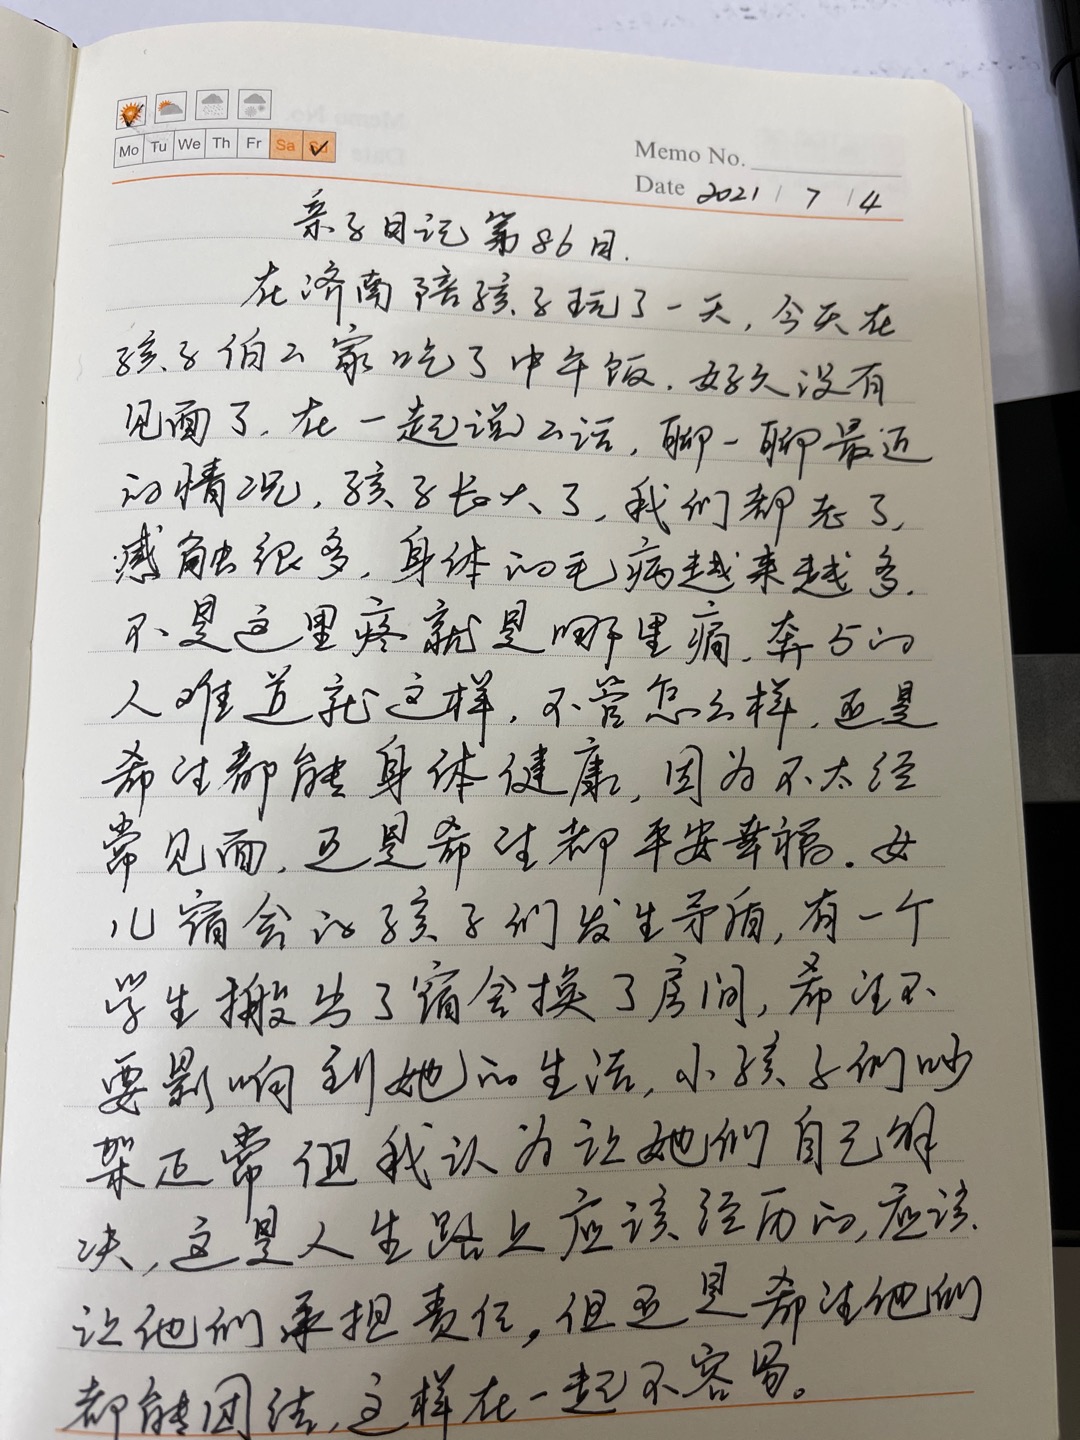 Mo Tu We Th Fr Sa
Memo No.
Date 2021 / 7 / 4
亲子日记第86日.
在济南陪孩子玩了一天,今天在
孩子伯公家吃了中午饭.好久没有
见面了.在一起说公话,聊一聊最近
的情况,孩子长大了,我们都老了,
感触很多,身体的毛病越来越多.
不是这里疼就是哪里痛.奔5的
人难道就这样,不管怎么样,还是
希望都能身体健康,因为不太经
常见面,还是希望都平安幸福.女
儿宿舍的孩子们发生矛盾,有一个
学生搬出了宿舍换了房间,希望不
要影响到她的生活,小孩子们吵
架正常但我认为让她们自己解
决,这是人生路上应该经历的,应该
让他们承担责任,但还是希望他们
都能团结,这样在一起不容易。